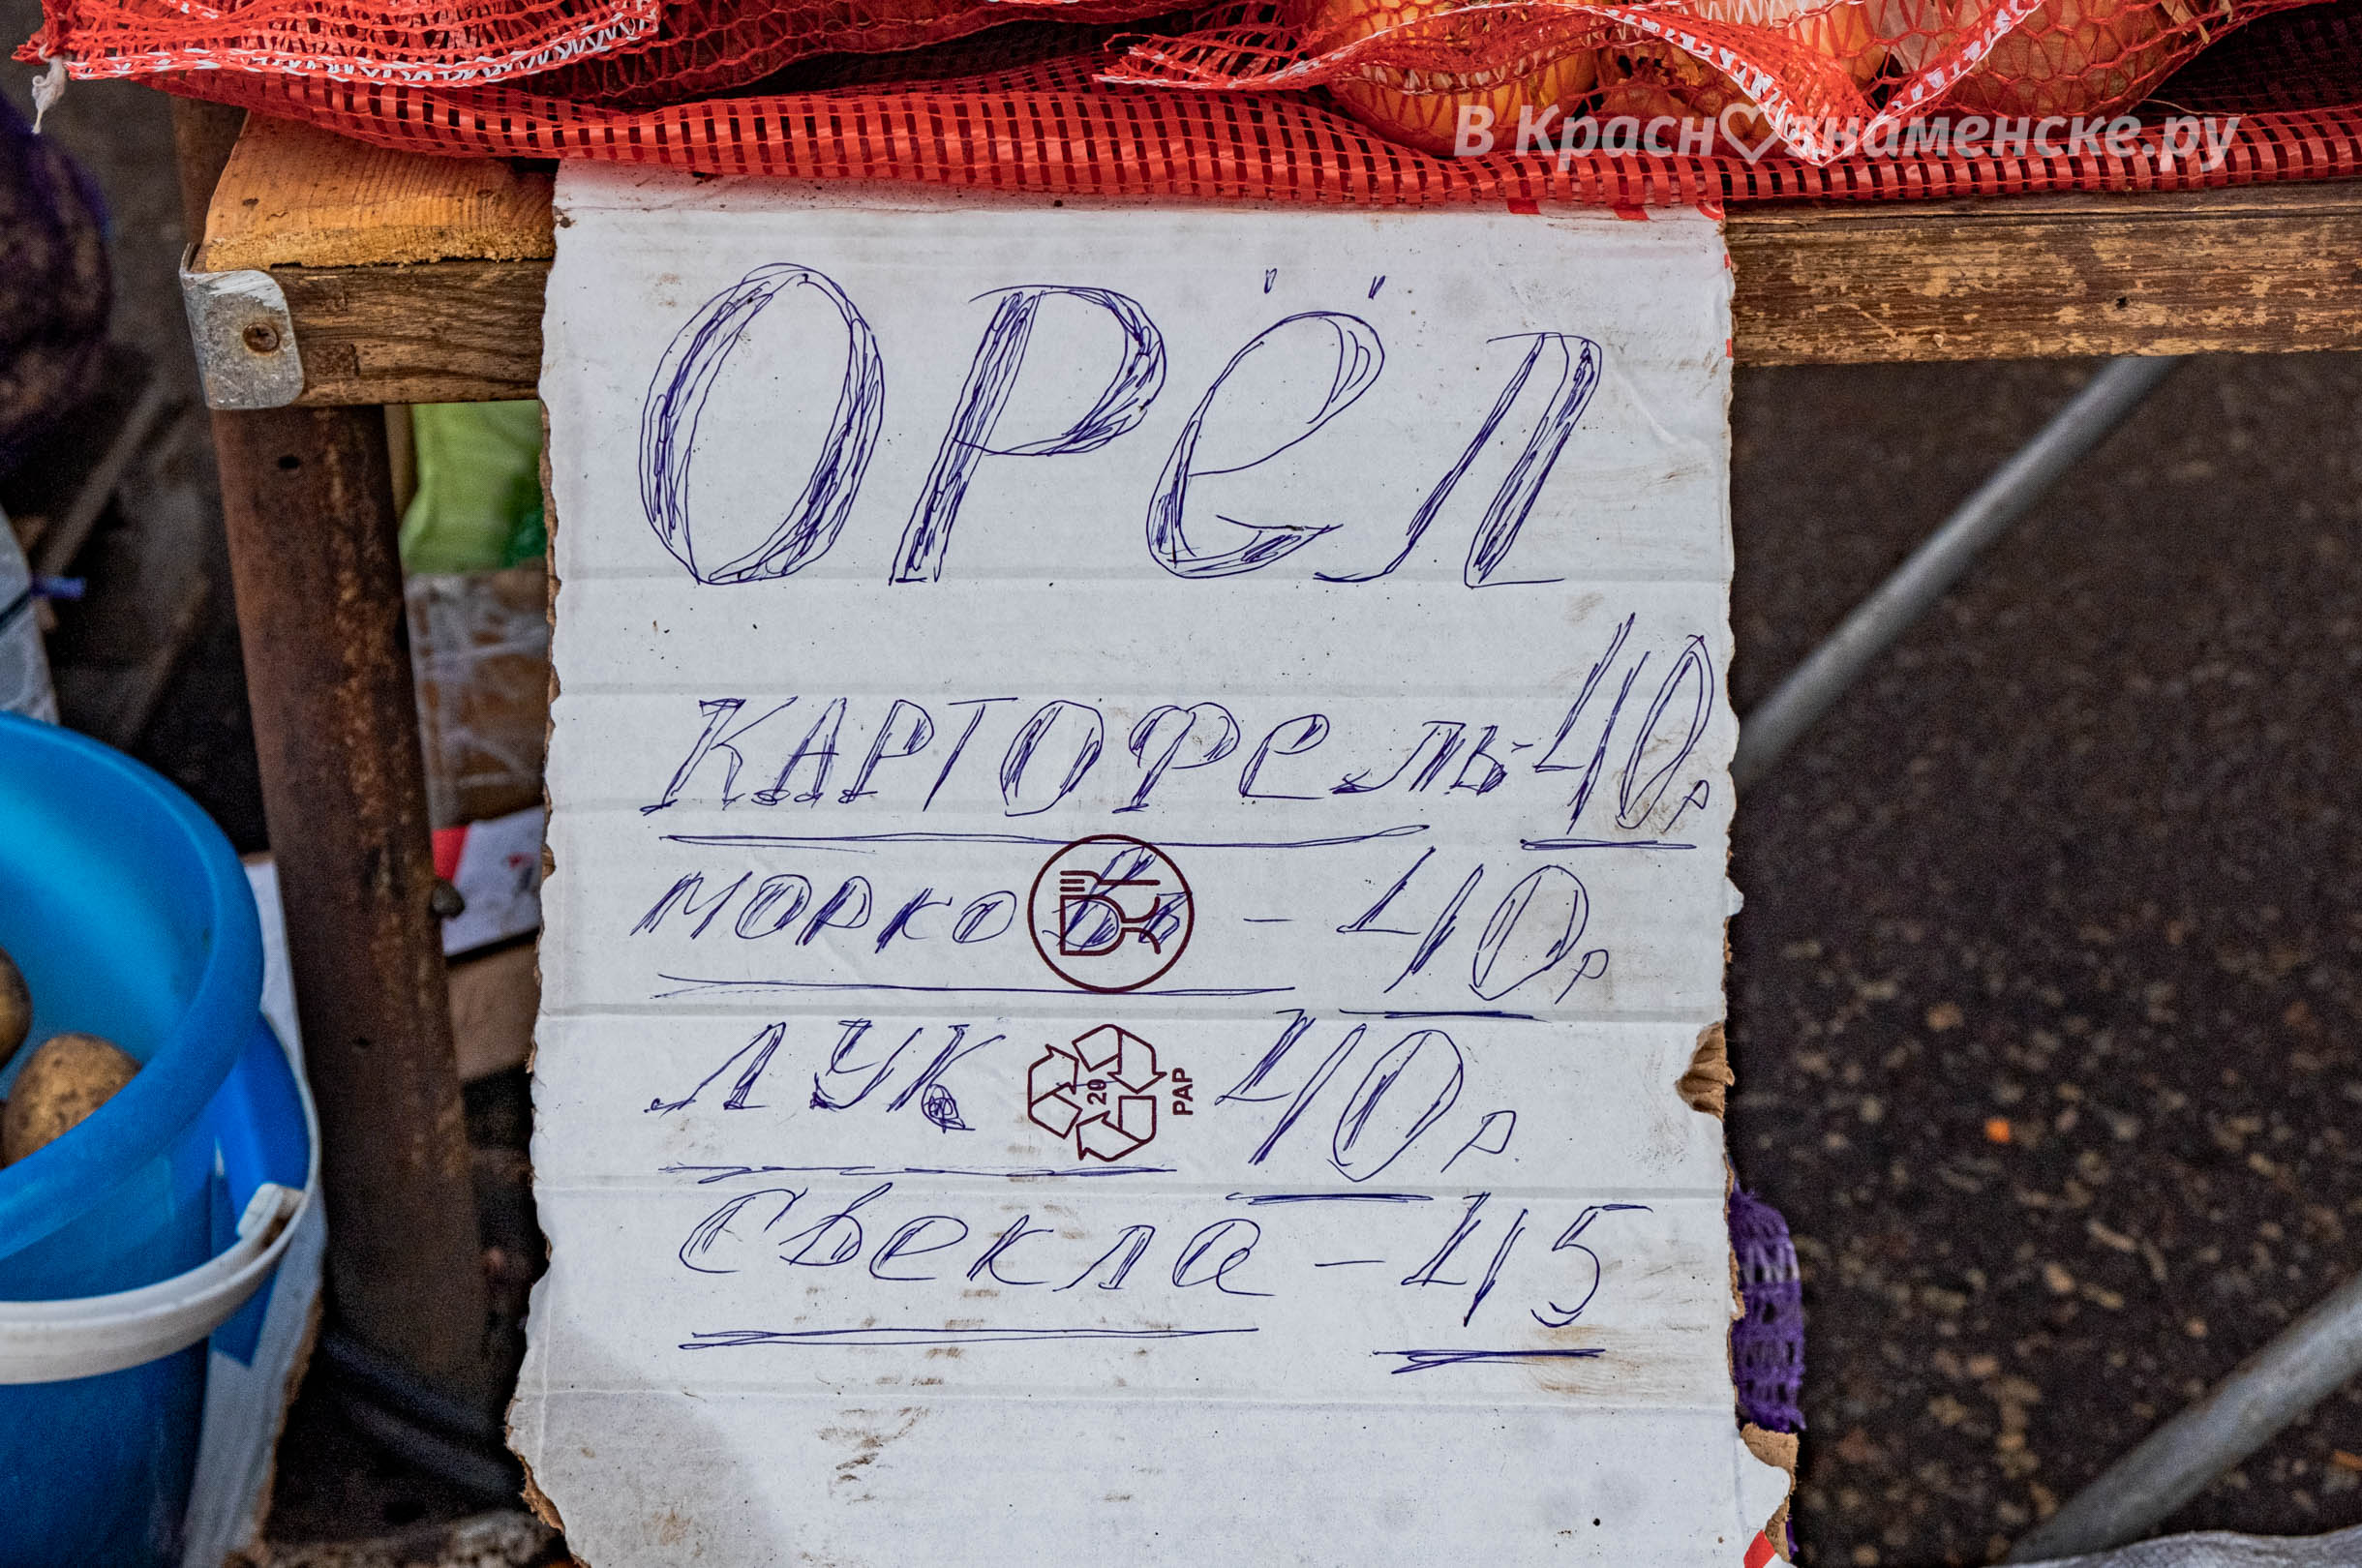 В Красн♡знаменске.ру
ОРЁЛ
КАРТОФЕЛЬ-40р
МОРКОВЬ - 40р
ЛУК 40р.
20 PAP
Свекла - 45